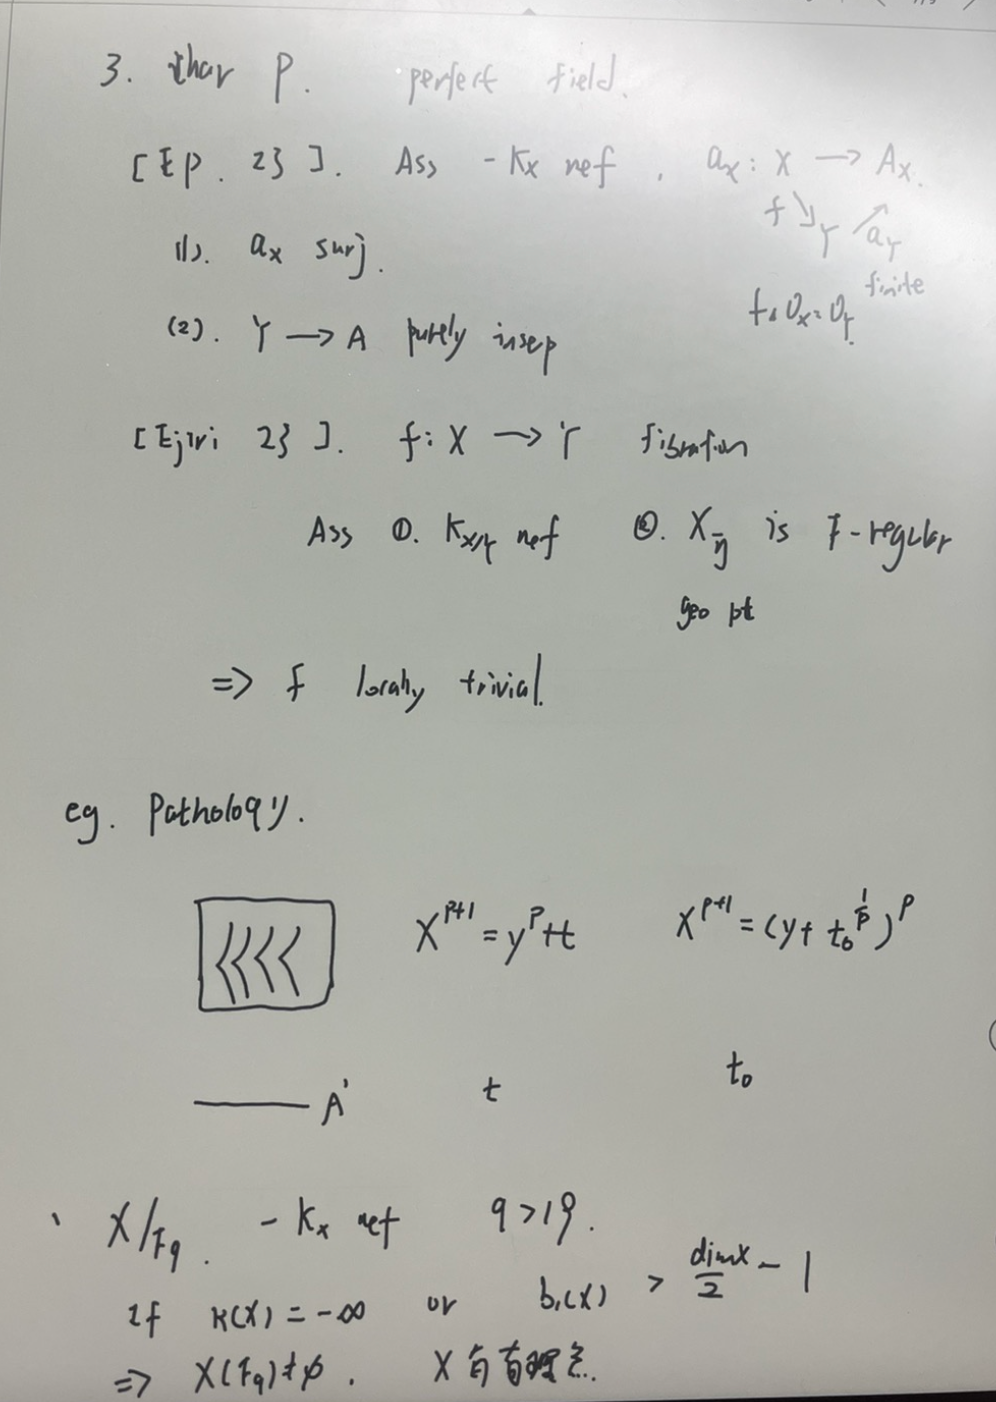 3. char p. perfect field.
[Ep. 23]. Ass -Kx nef, ax: X → Ax.
f ↘ Y ↗ aY
(1). ax surj.
finite
f* Ox = OY.
(2). Y → A purely insep
[Ejiri 23]. f: X → Y fibration
Ass ①. Kx/Y nef ②. Xη̄ is F-regular
geo pt
=> f locally trivial.
eg. Pathology.
X^{p+1} = y^p+t X^{p+1} = (y + t0^{1/p})^p
A' t t0
X/Fq. -Kx nef q > 19.
If K(X) = -∞ or b1(X) > dimX/2 - 1
=> X(Fq) ≠ ∅. X 有有理点.